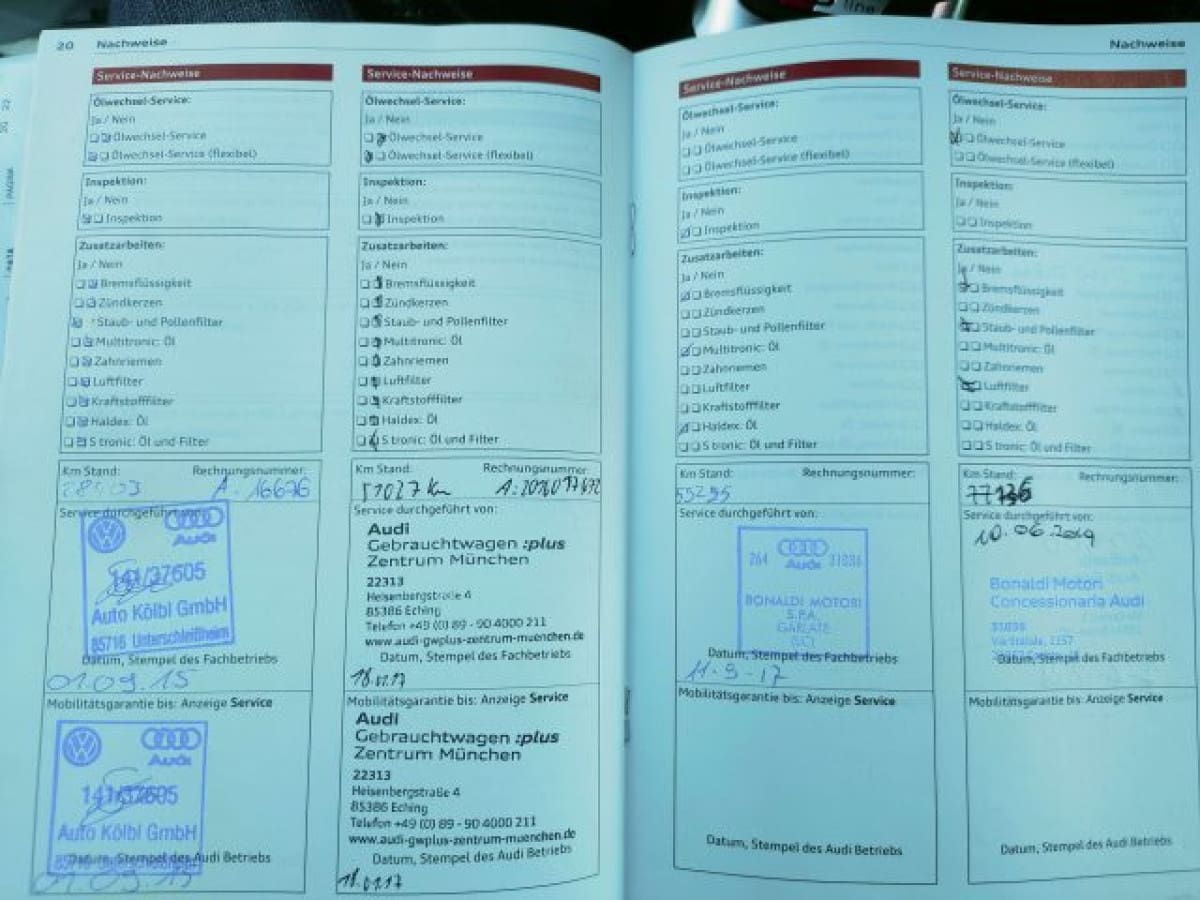 line
20 Nachweise
Service-Nachweise
Ölwechsel-Service:
Ja / Nein
Ölwechsel-Service
Ölwechsel-Service (flexibel)
Inspektion:
Ja / Nein
Inspektion
Zusatzarbeiten:
Ja / Nein
Bremsflüssigkeit
Zündkerzen
Staub- und Pollenfilter
Multitronic: Öl
Zahnriemen
Luftfilter
Kraftstofffilter
Haldex: Öl
S tronic: Öl und Filter
Km Stand: Rechnungsnummer:
28103 A-16676
Service durchgeführt von:
Audi
141/37605
Auto Kölbl GmbH
85716 Unterschleißheim
Datum, Stempel des Fachbetriebs
01.09.15
Mobilitätsgarantie bis: Anzeige Service
Audi
141/37605
Auto Kölbl GmbH
85716
Datum, Stempel des Audi Betriebs
01.09.15
Service-Nachweise
Ölwechsel-Service:
Ja / Nein
Ölwechsel-Service
Ölwechsel-Service (flexibel)
Inspektion:
Ja / Nein
Inspektion
Zusatzarbeiten:
Ja / Nein
Bremsflüssigkeit
Zündkerzen
Staub- und Pollenfilter
Multitronic: Öl
Zahnriemen
Luftfilter
Kraftstofffilter
Haldex: Öl
S tronic: Öl und Filter
Km Stand: Rechnungsnummer:
51027 Km
Service durchgeführt von:
Audi
Gebrauchtwagen :plus
Zentrum München
22313
Heisenbergstraße 4
85386 Eching
Telefon +49 (0) 89 - 90 4000 211
www.audi-gwplus-zentrum-muenchen.de
Datum, Stempel des Fachbetriebs
18.01.17
Mobilitätsgarantie bis: Anzeige Service
Audi
Gebrauchtwagen :plus
Zentrum München
22313
Heisenbergstraße 4
85386 Eching
Telefon +49 (0) 89 - 90 4000 211
www.audi-gwplus-zentrum-muenchen.de
Datum, Stempel des Audi Betriebs
18.01.17
Nachweise
Service-Nachweise
Ölwechsel-Service:
Ja / Nein
Ölwechsel-Service
Ölwechsel-Service (flexibel)
Inspektion:
Ja / Nein
Inspektion
Zusatzarbeiten:
Ja / Nein
Bremsflüssigkeit
Zündkerzen
Staub- und Pollenfilter
Multitronic: Öl
Zahnriemen
Luftfilter
Kraftstofffilter
Haldex: Öl
S tronic: Öl und Filter
Km Stand: Rechnungsnummer:
55295
Service durchgeführt von:
264 Audi 31036
BONALDI MOTORI
S.P.A.
GARLATE
(LC)
Datum, Stempel des Fachbetriebs
11-9-17
Mobilitätsgarantie bis: Anzeige Service
Datum, Stempel des Audi Betriebs
Service-Nachweise
Ölwechsel-Service:
Ja / Nein
Ölwechsel-Service
Ölwechsel-Service (flexibel)
Inspektion:
Ja / Nein
Inspektion
Zusatzarbeiten:
Ja / Nein
Bremsflüssigkeit
Zündkerzen
Staub- und Pollenfilter
Multitronic: Öl
Zahnriemen
Luftfilter
Kraftstofffilter
Haldex: Öl
S tronic: Öl und Filter
Km Stand: Rechnungsnummer:
Service durchgeführt von:
10.06.2019
Bonaldi Motori
Concessionaria Audi
31036
Via Statale, 1157
Datum, Stempel des Fachbetriebs
Mobilitätsgarantie bis: Anzeige Service
Datum, Stempel des Audi Betriebs